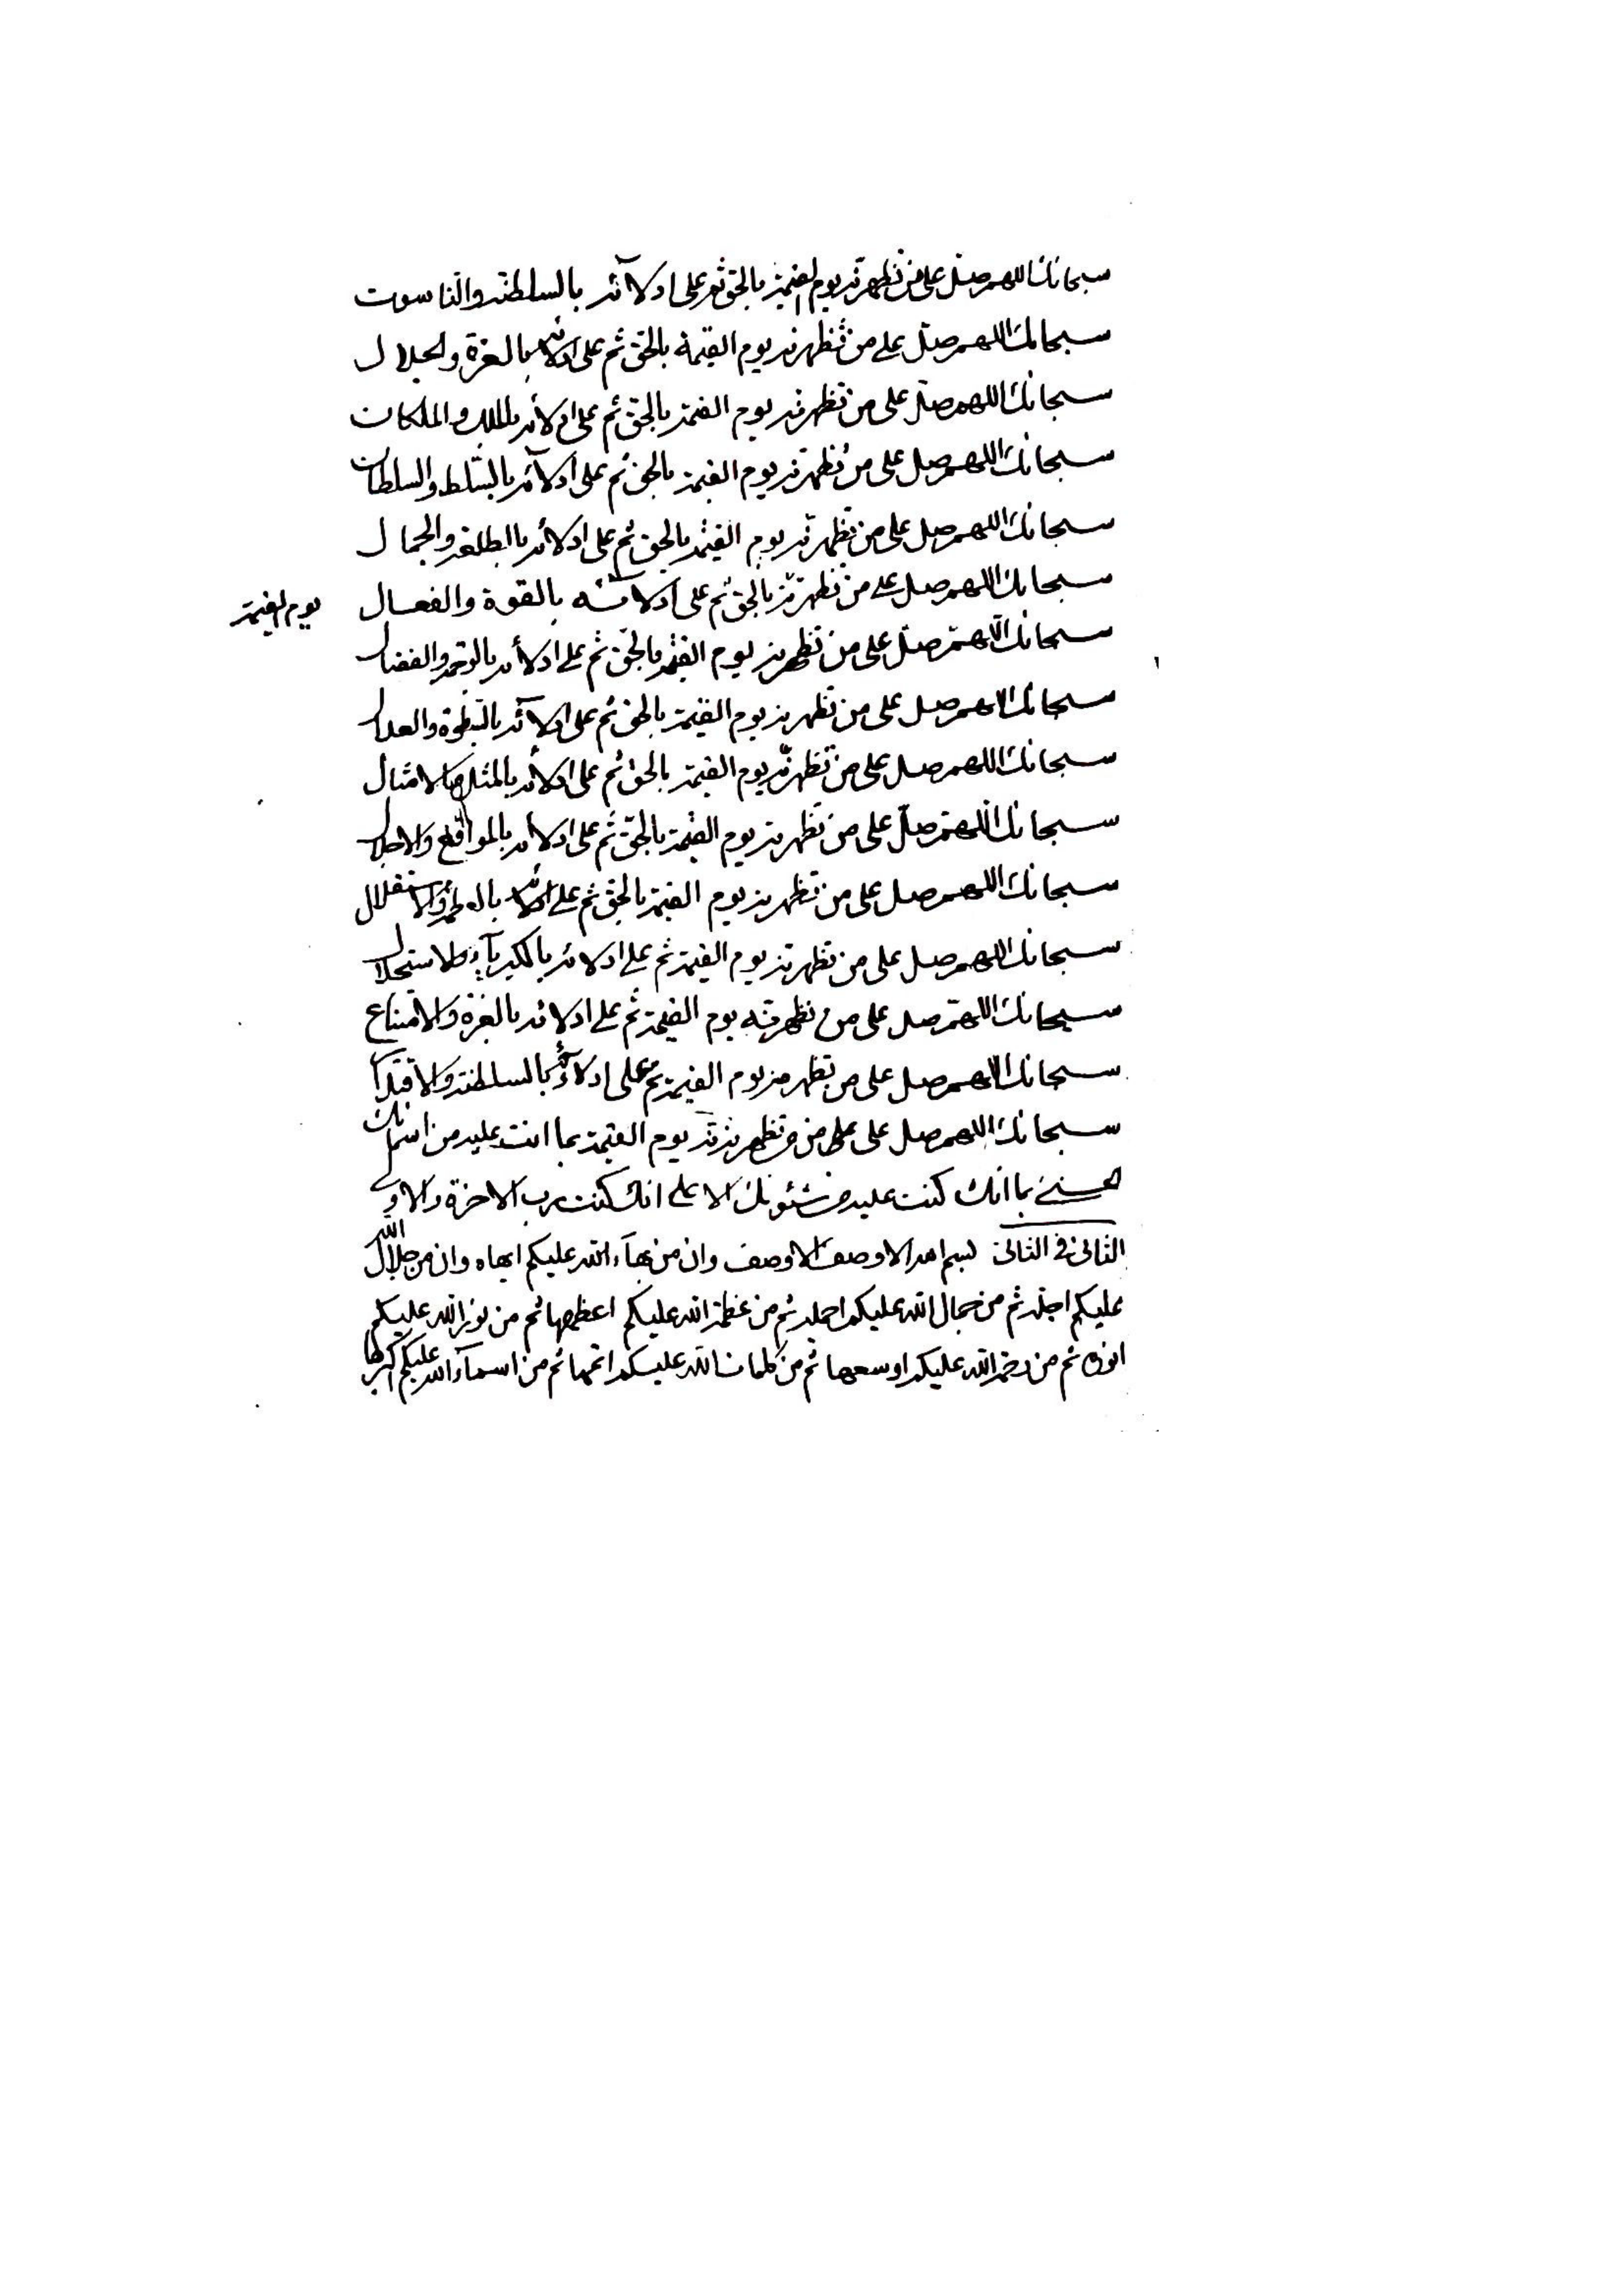 سبحانك اللهم صل على من تظهرنه يوم القيمة بالحق ثم على ادلائه بالسلطنة والناسوت
سبحانك اللهم صل على من تظهرنه يوم القيمة بالحق ثم على ادلائه بالعزة والجلال
سبحانك اللهم صل على من تظهرنه يوم القيمة بالحق ثم على ادلائه بالملك والملكان
سبحانك اللهم صل على من تظهرنه يوم القيمة بالحق ثم على ادلائه بالتسلط والسلطان
سبحانك اللهم صل على من تظهرنه يوم القيمة بالحق ثم على ادلائه بالطلعة والجمال
سبحانك اللهم صل على من تظهرنه بالحق ثم على ادلائه بالقوة والفعال يوم القيمة
سبحانك اللهم صل على من تظهرنه يوم القيمة بالحق ثم على ادلائه والفضال
سبحانك اللهم صل على من تظهرنه يوم القيمة بالحق ثم على ادلائه بالسطوة والعدال
سبحانك اللهم صل على من تظهرنه يوم القيمة بالحق ثم على ادلائه بالمثل والامثال
سبحانك اللهم صل على من تظهرنه يوم القيمة بالحق ثم على ادلائه بالمواقع والاجلال
سبحانك اللهم صل على من تظهرنه يوم القيمة بالحق ثم على ادلائه والاستقلال
سبحانك اللهم صل على من تظهرنه يوم القيمة ثم على ادلائه بالكبرياء والاستجلال
سبحانك اللهم صل على من تظهرنه يوم القيمة ثم على ادلائه بالعزة والامتناع
سبحانك اللهم صل على من تظهرنه يوم القيمة ثم على ادلائه بالسلطنة والاقتدار
سبحانك اللهم صل على من تظهرنه يوم القيمة بما انت عليه من اسمائك
الحسنى بما انك كنت عليه من شئونك الاعلى انك كنت رب الاخرة والاولى
الثانى فى الثانى بسم الله الاوصف الاوصف وان من بهاء الله عليكم ابهاه وان من جلال الله
عليكم اجله ثم من جمال الله عليكم اجمله ثم من عظمة الله عليكم اعظمها ثم من نور الله عليكم
انوره ثم من رحمة الله عليكم اوسعها ثم من كلمات الله عليكم اتمها ثم من اسماء الله عليكم اكبرها